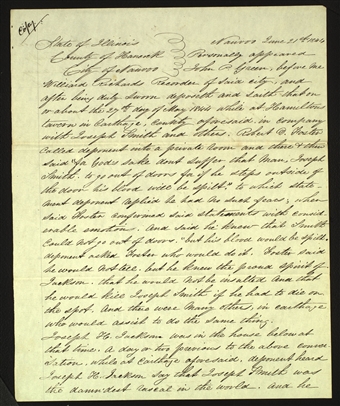 Copy
State of Illinois Nauvoo June 21st 1844
County of Hancock Personally appeared
City of Nauvoo John P Green, before me
William Richard Recorder of said city, and
after being duly sworn, deposeth and saith that on
or about the 27th day of May, while at Hamiltons
tavern in Carthage, County aforesaid, in company
with Joseph Smith and others, Robert D. Foster
called deponent into a private room and there & then
said "for Gods sake dont suffer that man, Joseph
Smith, to go out of doors for if he steps outside of
the door his blood will be spilt," to which state-
ment deponent replied he had no such fears, when
said Foster confirmed said statements with consid
erable emotion. And said he knew that Smith
could not go out of doors but his blood would be spilt,
deponent asked Foster who would do it. Foster said
he would not tell, but he knew the proud spirit of
Jackson, that he would not be insulted and that
he would kill Joseph Smith if he had to die on
the spot. And there were many others, in carthage
who would assist to do the same thing.
Joseph H. Jackson was in the house below at
that time. A day or two previous to the above conver
sation, while at Carthage aforesaid, deponent heard
Joseph H. Jackson say that Joseph Smith was
the damn-dest rascal in the world. And he